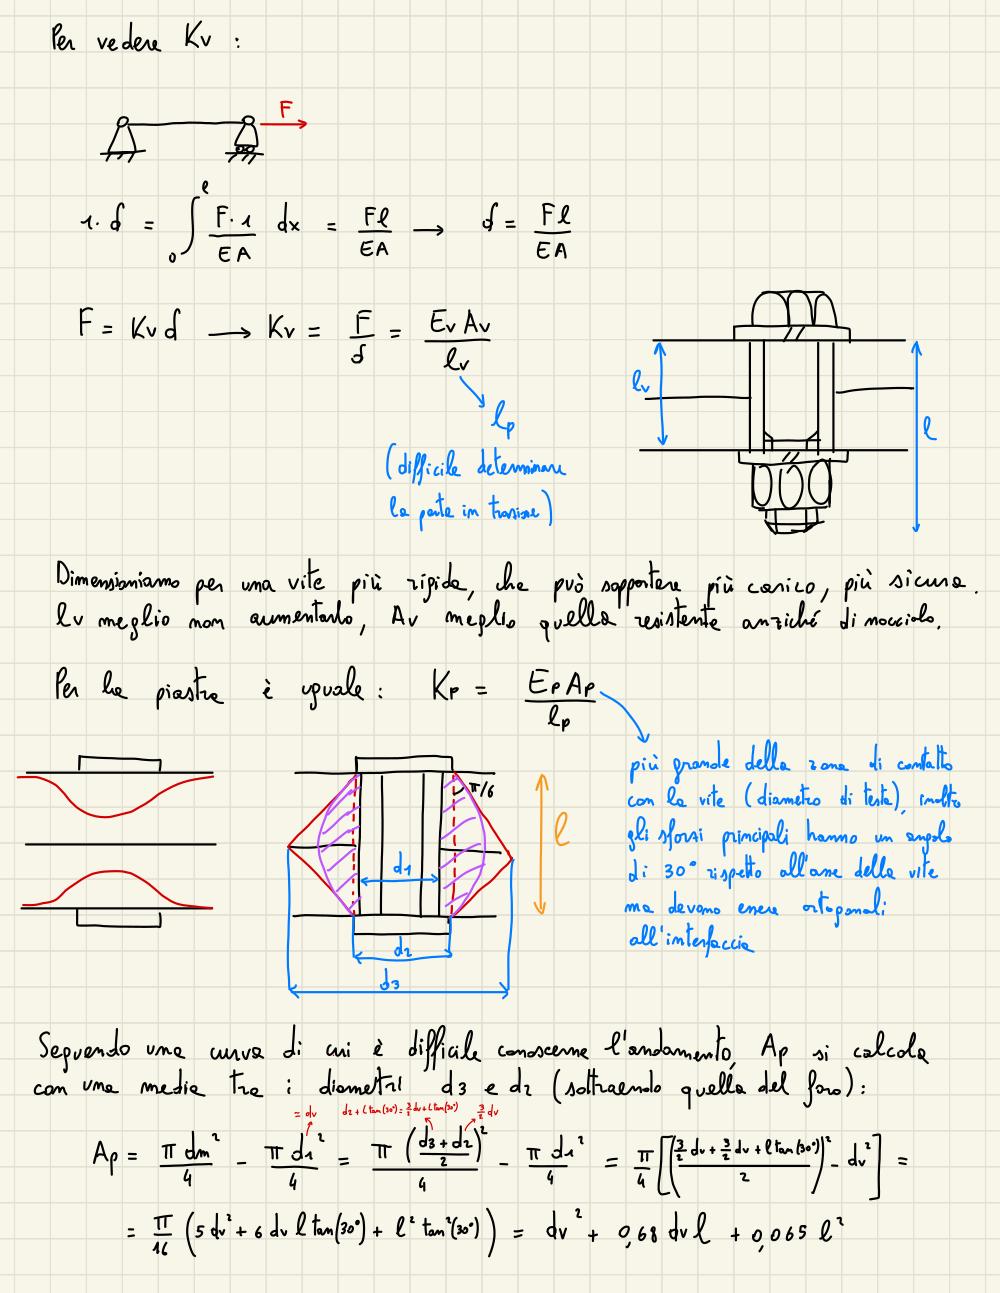 Per vedere Kv :
F
1· δ = ∫₀ˡ F·1/EA dx = Fl/EA → δ = Fl/EA
F = Kv δ → Kv = F/δ = Ev Av/lv
lp
(difficile determinare
la parte in trazione)
lv
l
Dimensioniamo per una vite più rigida, che può sopportare più carico, più sicura.
lv meglio non aumentarlo, Av meglio quella resistente anziché di nocciolo.
Per la piastra è uguale : Kp = Ep Ap/lp
più grande della zona di contatto
con la vite (diametro di testa), inoltre
gli sforzi principali hanno un angolo
di 30° rispetto all'asse della vite
ma devono essere ortogonali
all'interfaccia
π/6
l
d1
d2
d3
Seguendo una curva di cui è difficile conoscerne l'andamento, Ap si calcola
con una media tra i diametri d3 e d2 (sottraendo quella del foro) :
= dv d2 + l tan(30°) = 3/2 dv + l tan(30°) 3/2 dv
Ap = π dm²/4 - π d1²/4 = π ((d3 + d2)/2)²/4 - π d1²/4 = π/4 [((3/2 dv + 3/2 dv + l tan(30°))/2)² - dv²] =
= π/16 (5 dv² + 6 dv l tan(30°) + l² tan²(30°)) = dv² + 0,68 dv l + 0,065 l²